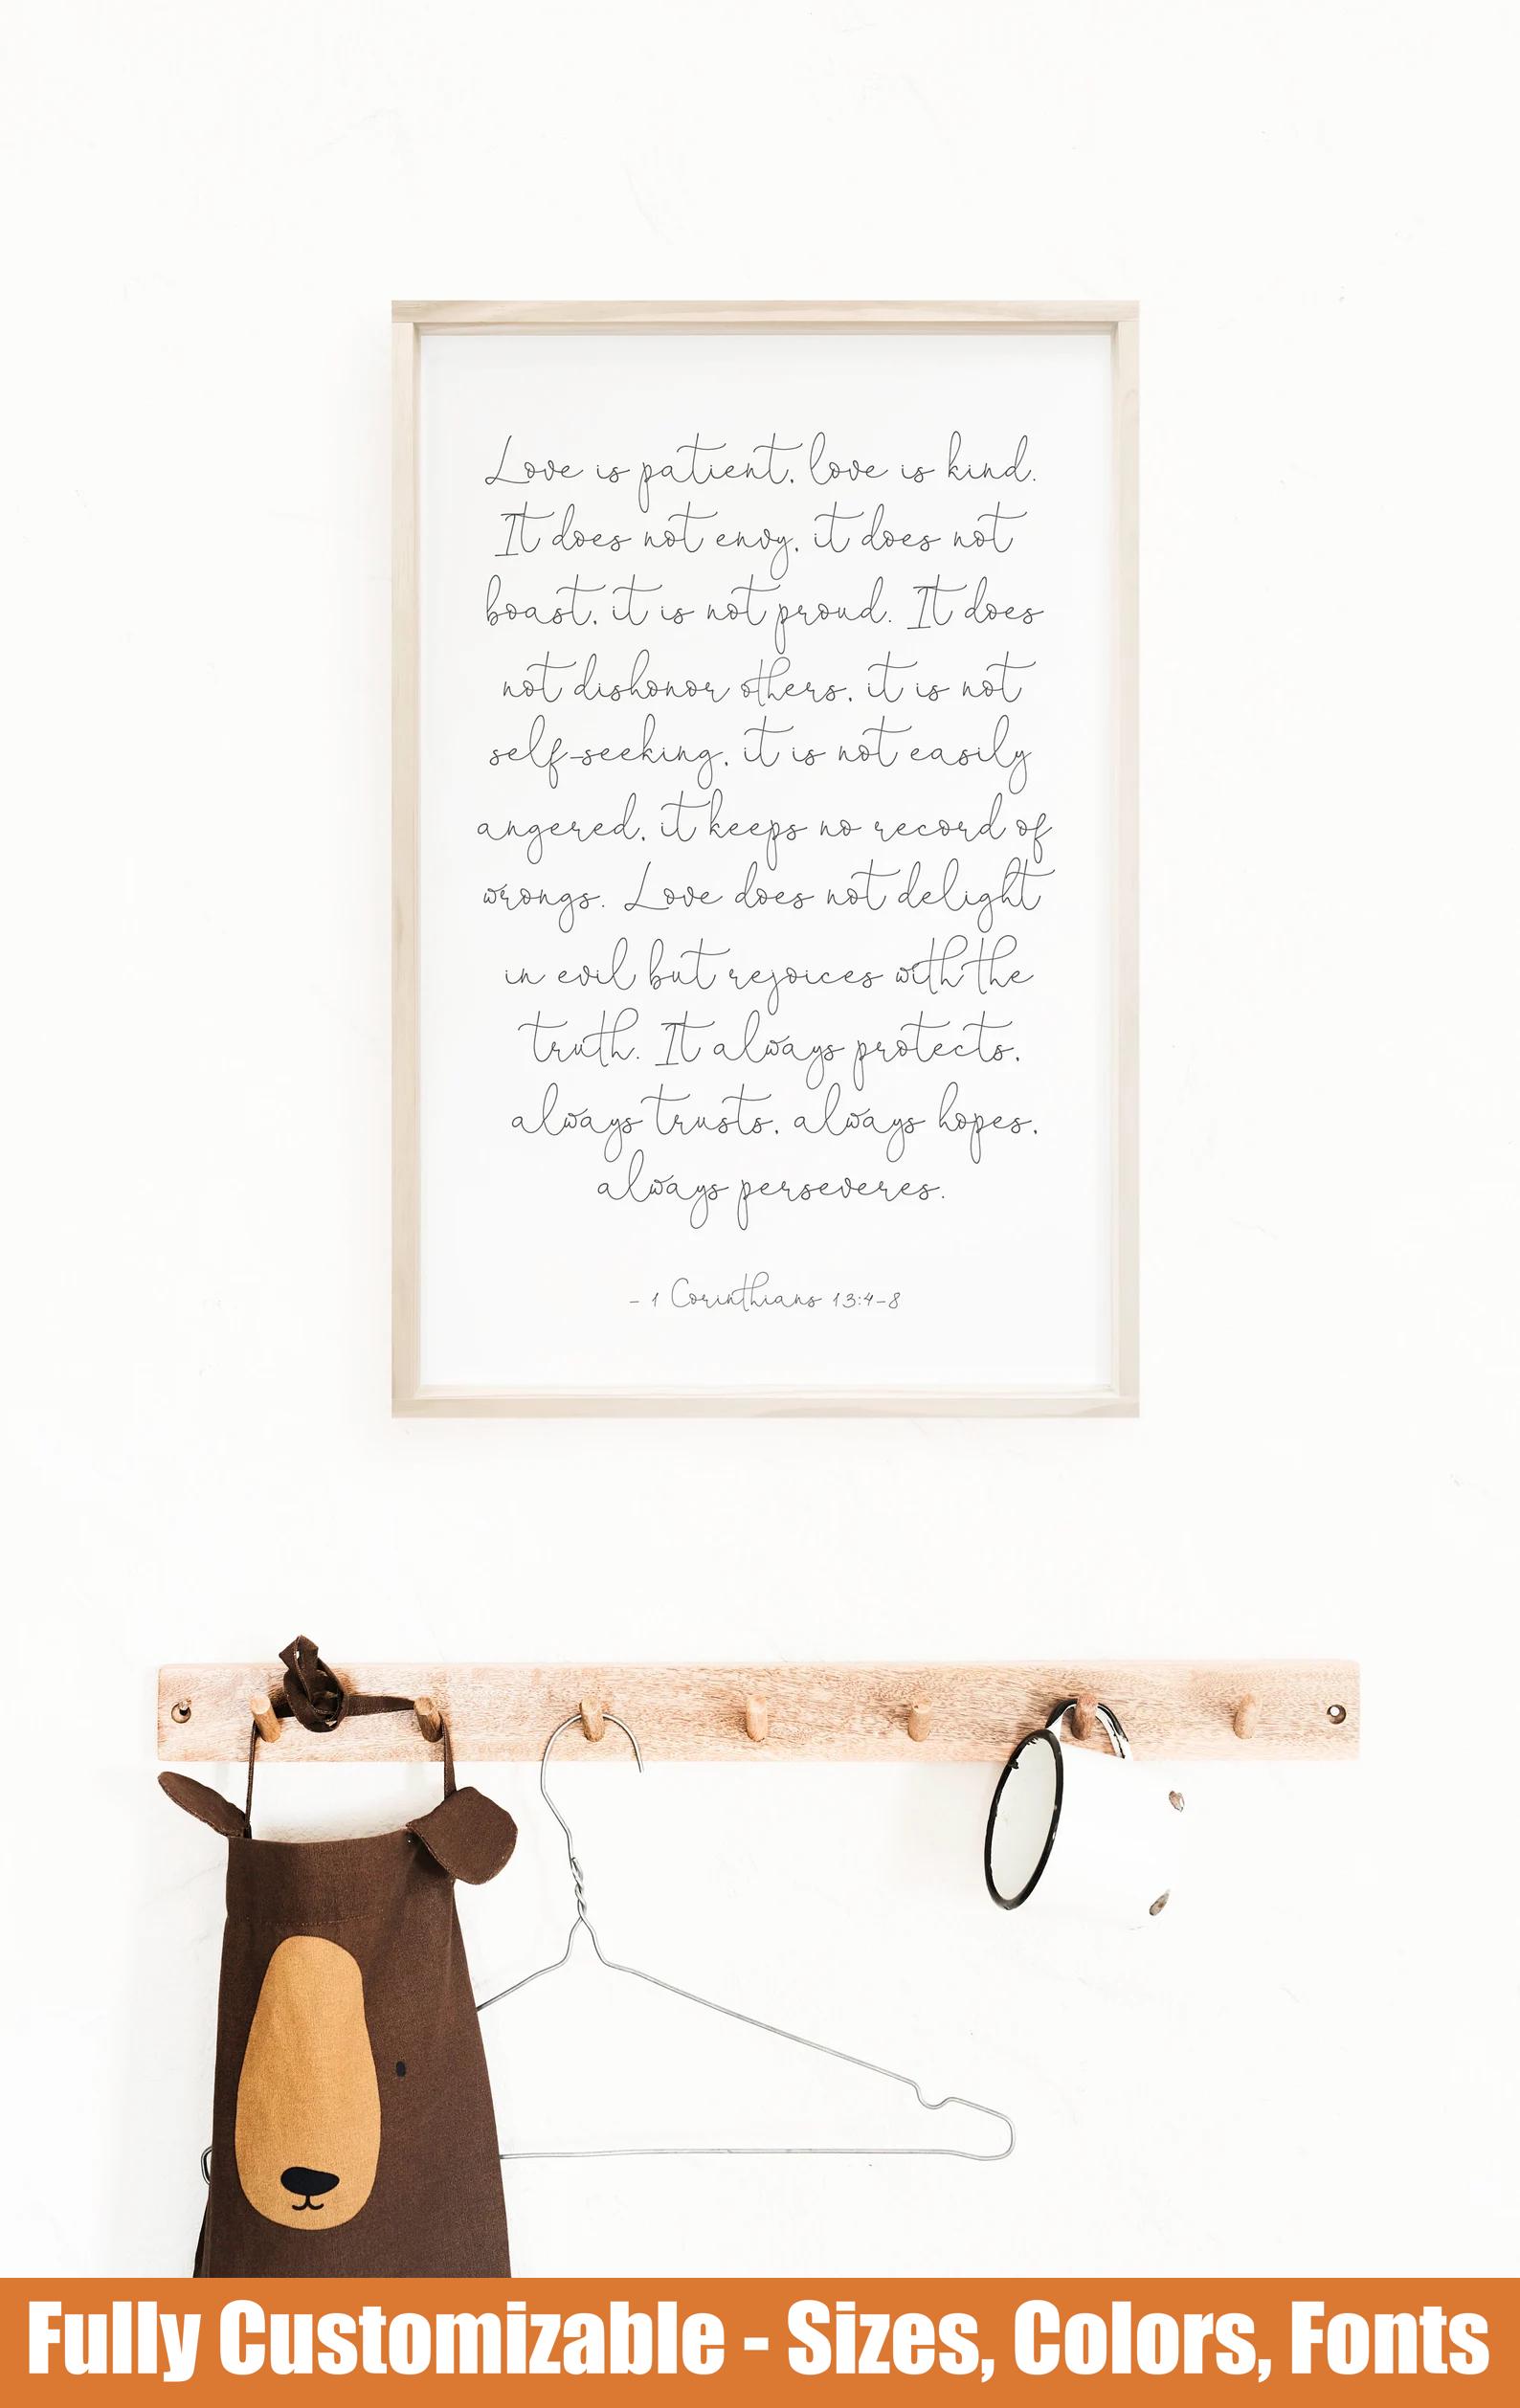 Love is patient, love is kind.
It does not envy, it does not
boast, it is not proud. It does
not dishonor others, it is not
self-seeking, it is not easily
angered, it keeps no record of
wrongs. Love does not delight
in evil but rejoices with the
truth. It always protects,
always trusts, always hopes,
always perseveres.
- 1 Corinthians 13:4-8
Fully Customizable - Sizes, Colors, Fonts